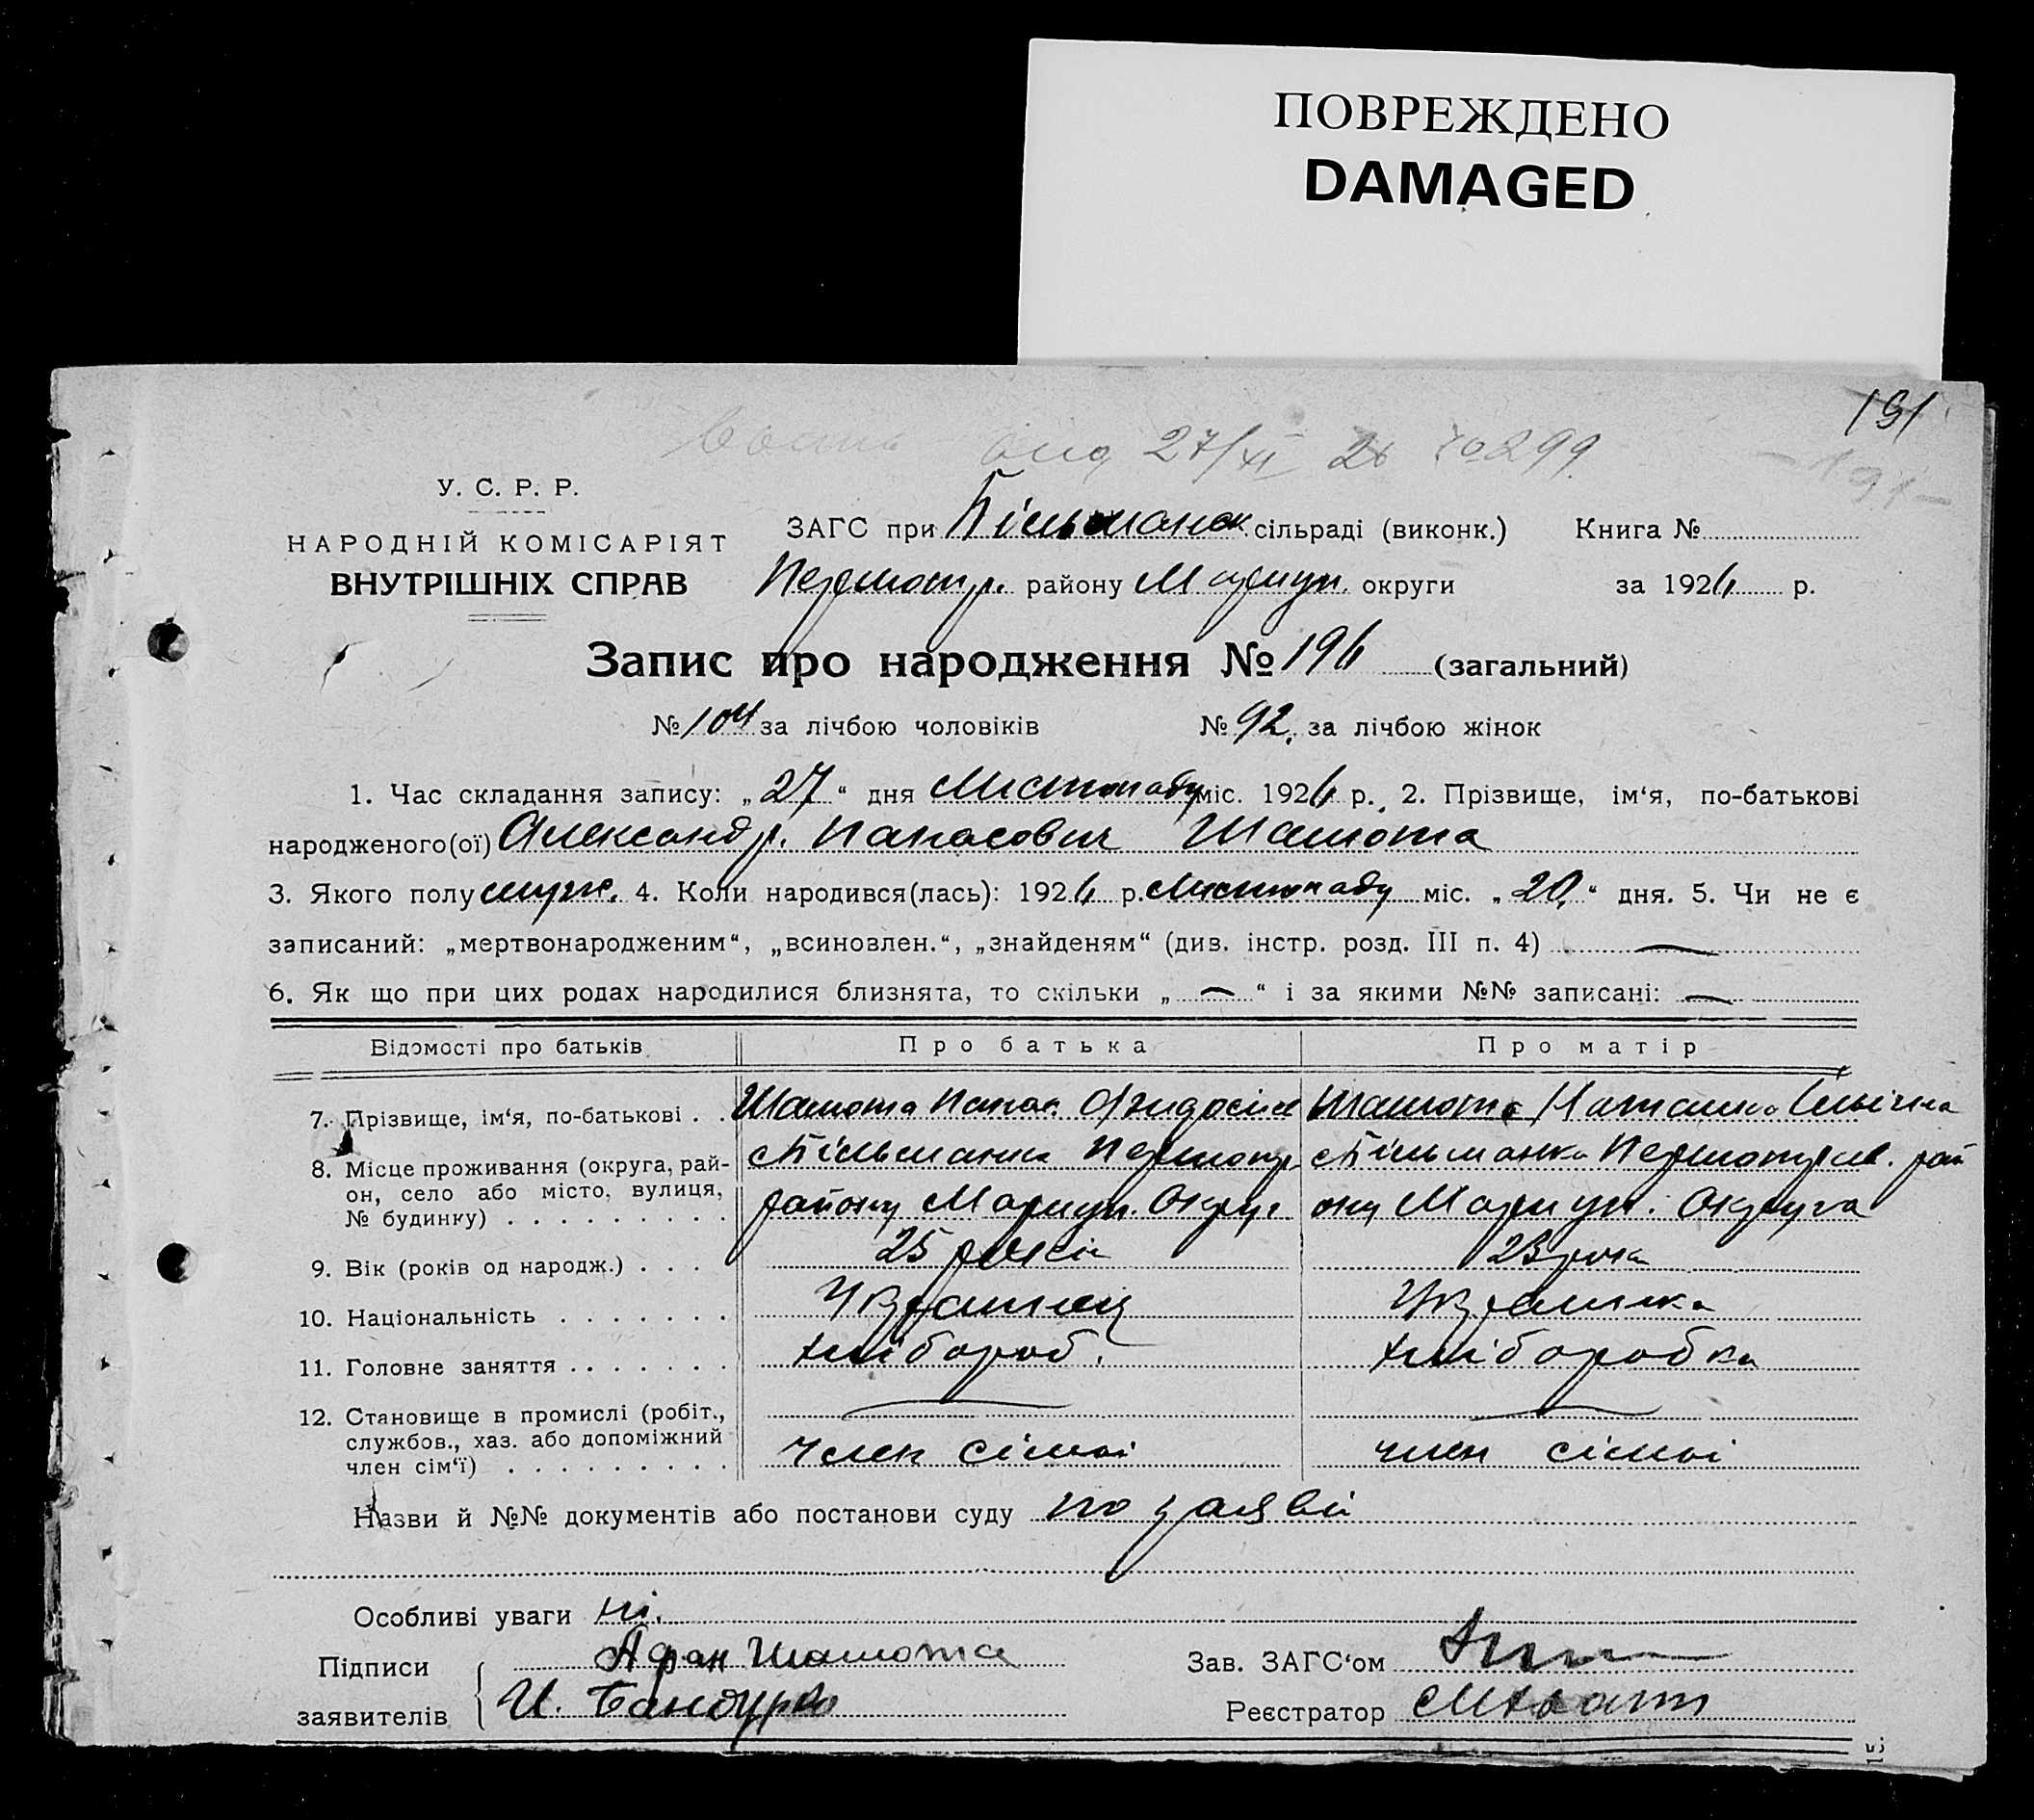 ПОВРЕЖДЕНО
DAMAGED
191
27/XI 26 №299.
-191-
У. С. Р. Р.
НАРОДНІЙ КОМІСАРІЯТ
ВНУТРІШНІХ СПРАВ
ЗАГС при Більманск. сільраді (виконк.) Книга №
району Маріуп. округи за 1926 р.
Запис про народження № 196 (загальний)
№ 104 за лічбою чоловіків № 92. за лічбою жінок
1. Час складання запису: „27“ дня Листопаду міс. 1926 р. 2. Прізвище, ім‘я, по-батькові
народженого(ої) Александр. Панасович Шамота
3. Якого полу муж. 4. Коли народився(лась): 1926 р. Листопаду міс. „20.“ дня. 5. Чи не є
записаний: „мертвонародженим“, „всиновлен.“, „знайденям“ (див. інстр. розд. III п. 4) —
6. Як що при цих родах народилися близнята, то скільки „—“ і за якими №№ записані: —
Відомості про батьків Про батька Про матір
7. Прізвище, ім‘я, по-батькові . . Шамота Панас Шамота Наталка Ільїчна
8. Місце проживання (округа, рай-
он, село або місто, вулиця,
№ будинку) . . . . . . . . .
с Більманка
району Маріуп. Округ
с Більманка рай
ону Маріуп. Округа
9. Вік (років од народж.) . . . 25 років 23 рока
10. Національність . . . . . . . Українец Українка
11. Головне заняття . . . . . . . хлібороб. хліборобка
12. Становище в промислі (робіт.,
службов., хаз. або допоміжний
член сім‘ї) . . . . . . . . .
— —
член сімьі член сімьі
Назви й №№ документів або постанови суду по заяві
Особливі уваги ні.
Підписи
заявителів
Афан Шамота
И. Бандурко
Зав. ЗАГС‘ом
Реєстратор